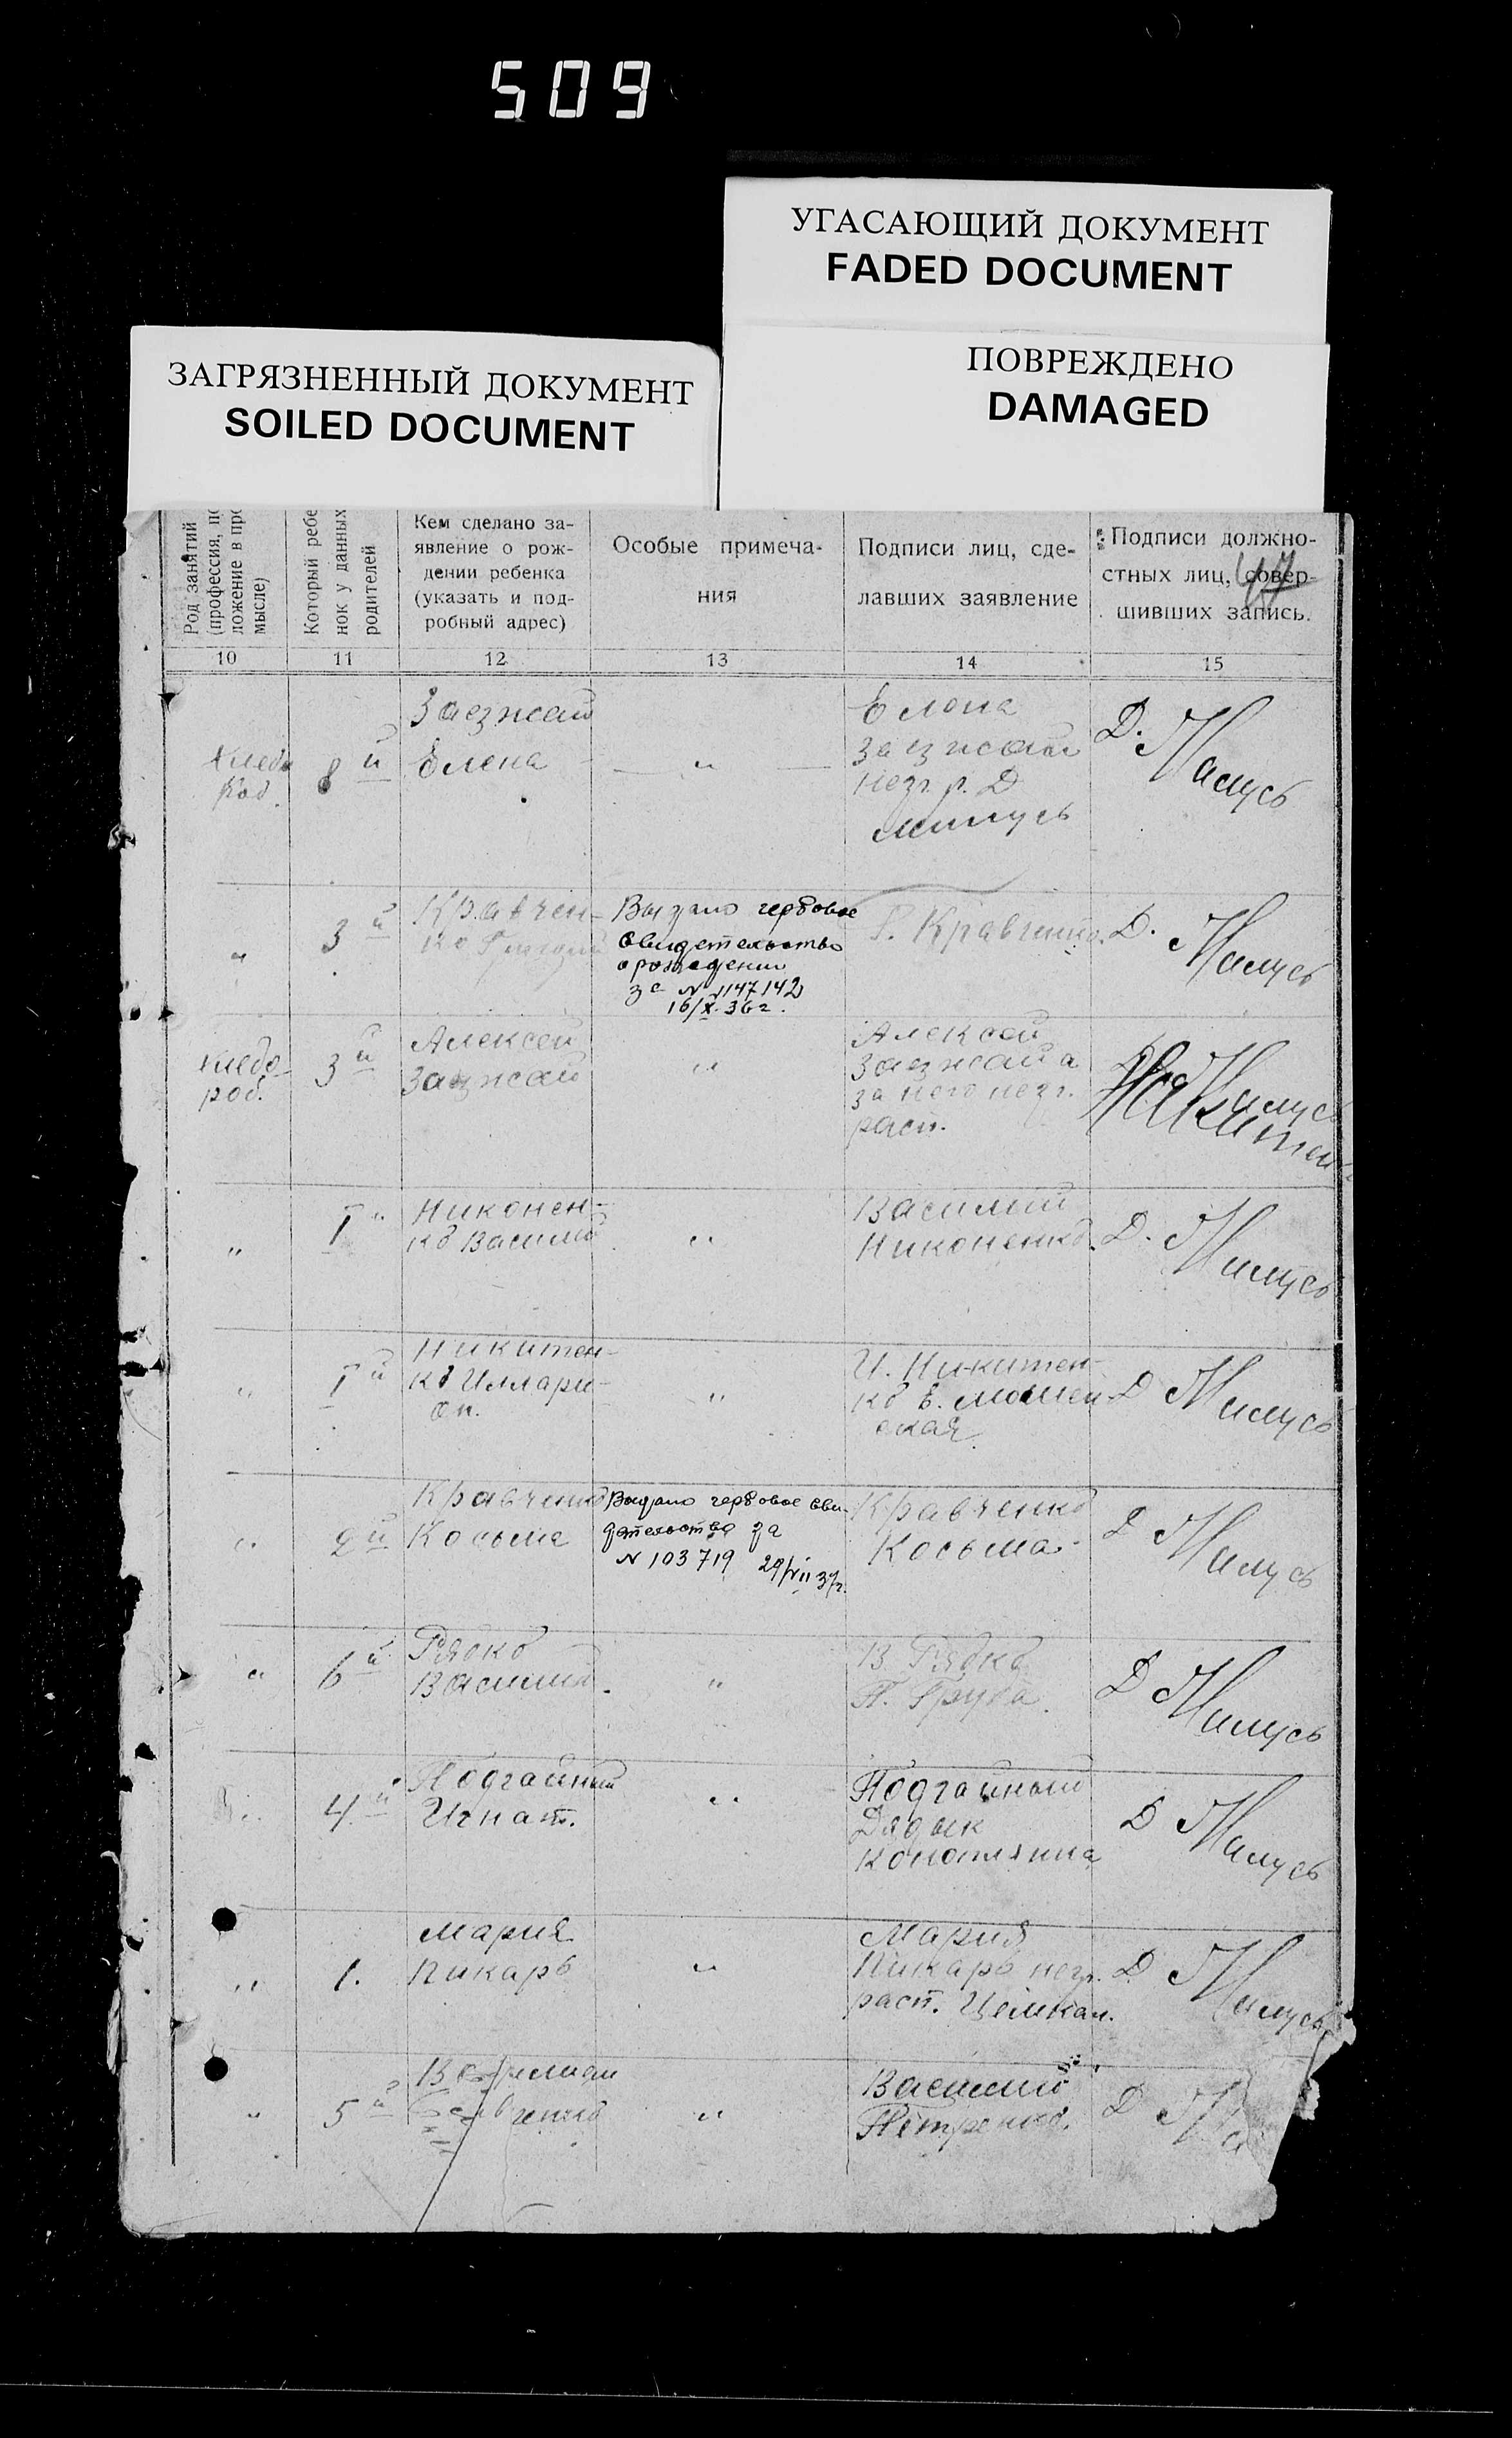 509
УГАСАЮЩИЙ ДОКУМЕНТ
FADED DOCUMENT
ПОВРЕЖДЕНО
DAMAGED
ЗАГРЯЗНЕННЫЙ ДОКУМЕНТ
SOILED DOCUMENT
Род занятий
(профессия, по
ложение в про
мысле)
Который ребе
нок у данных
родителей
Кем сделано за-
явление о рож-
дении ребенка
(указать и под-
робный адрес)
Особые примеча-
ния
Подписи лиц, сде-
лавших заявление
Подписи должно-
стных лиц, совер-
шивших запись.
47
10
11
12
13
14
15
Хлебо
роб.
8й
Заезжай
Елена
— " —
Елена
Заезжай
негр. р. Д
Милусь
Д. Милусь
"
3й
Кравчен-
ко Григорий
Выдано гербовое
свидетельство
о рождении
за № 1147142
16/X 36 г.
Г. Кравченко.
Д. Милусь
Хлебо-
роб.
3й
Алексей
Заезжай
"
Алексей
Заезжай а
за него негр.
расп.
Милусь
Никитенк
"
1й
Никонен-
ко Василий
"
Василий
Никоненко.
Д. Милусь
"
1й
Никитен-
ко Иллари-
он.
"
И. Никитен-
ко Е.
ская.
Д Милусь
"
2й
Кравченко
Косьма
Выдано гербовое сви-
детельство за
№ 103719 29/VII 37г.
Кравченко
Косьма
Д Милусь
"
6й
Рядко
Василий.
"
В Рядко
П. Груба.
Д Милусь
"
4й
Подгайный
Игнат.
"
Подгайный
Дядык
Коноплянка
Д Милусь
"
1.
Мария
Пикарь
"
Мария
Пикарь негр.
расп.
Д Милусь
"
5й
"
Василий
Петренко.
Д Ми